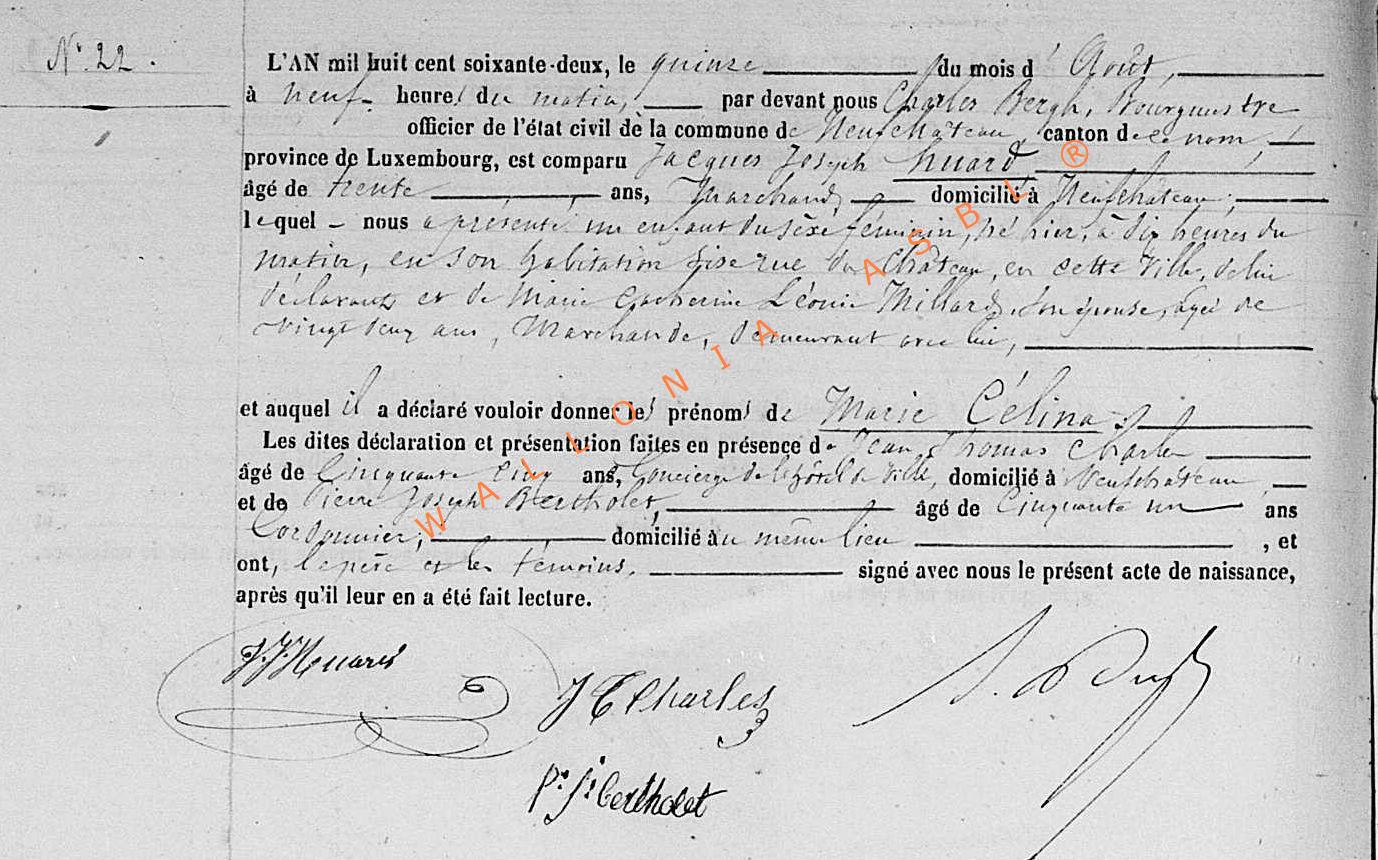 N° 22.
L'AN mil huit cent soixante-deux, le quinze du mois d'Août,
à neuf heures du matin, par devant nous Charles Bergh, Bourgmestre
officier de l'état civil de la commune de Neufchâteau, canton de ce nom,
province de Luxembourg, est comparu Jacques Joseph huard
âgé de trente ans, Marchand, domicilié à Neufchâteau,
lequel nous a présenté un enfant du sexe féminin, né hier, à dix heures du
matin, en son habitation sise rue du Château, en cette Ville, de lui
déclarant et de Marie Catherine Léonie Millard, son épouse, âgée de
vingt deux ans, Marchande, demeurant avec lui,
et auquel il a déclaré vouloir donner les prénoms de Marie Célina
Les dites déclaration et présentation faites en présence de Jean Thomas Charles
âgé de Cinquante cinq ans, Concierge de l'hôtel de Ville, domicilié à Neufchâteau,
et de Pierre Joseph Bertholet, âgé de Cinquante un ans
Cordonnier, domicilié au même lieu, et
ont, le père et les témoins, signé avec nous le présent acte de naissance,
après qu'il leur en a été fait lecture.
J.J. Houard
J T Charles
P. J. bertholet
WALLONIA ASBL ®